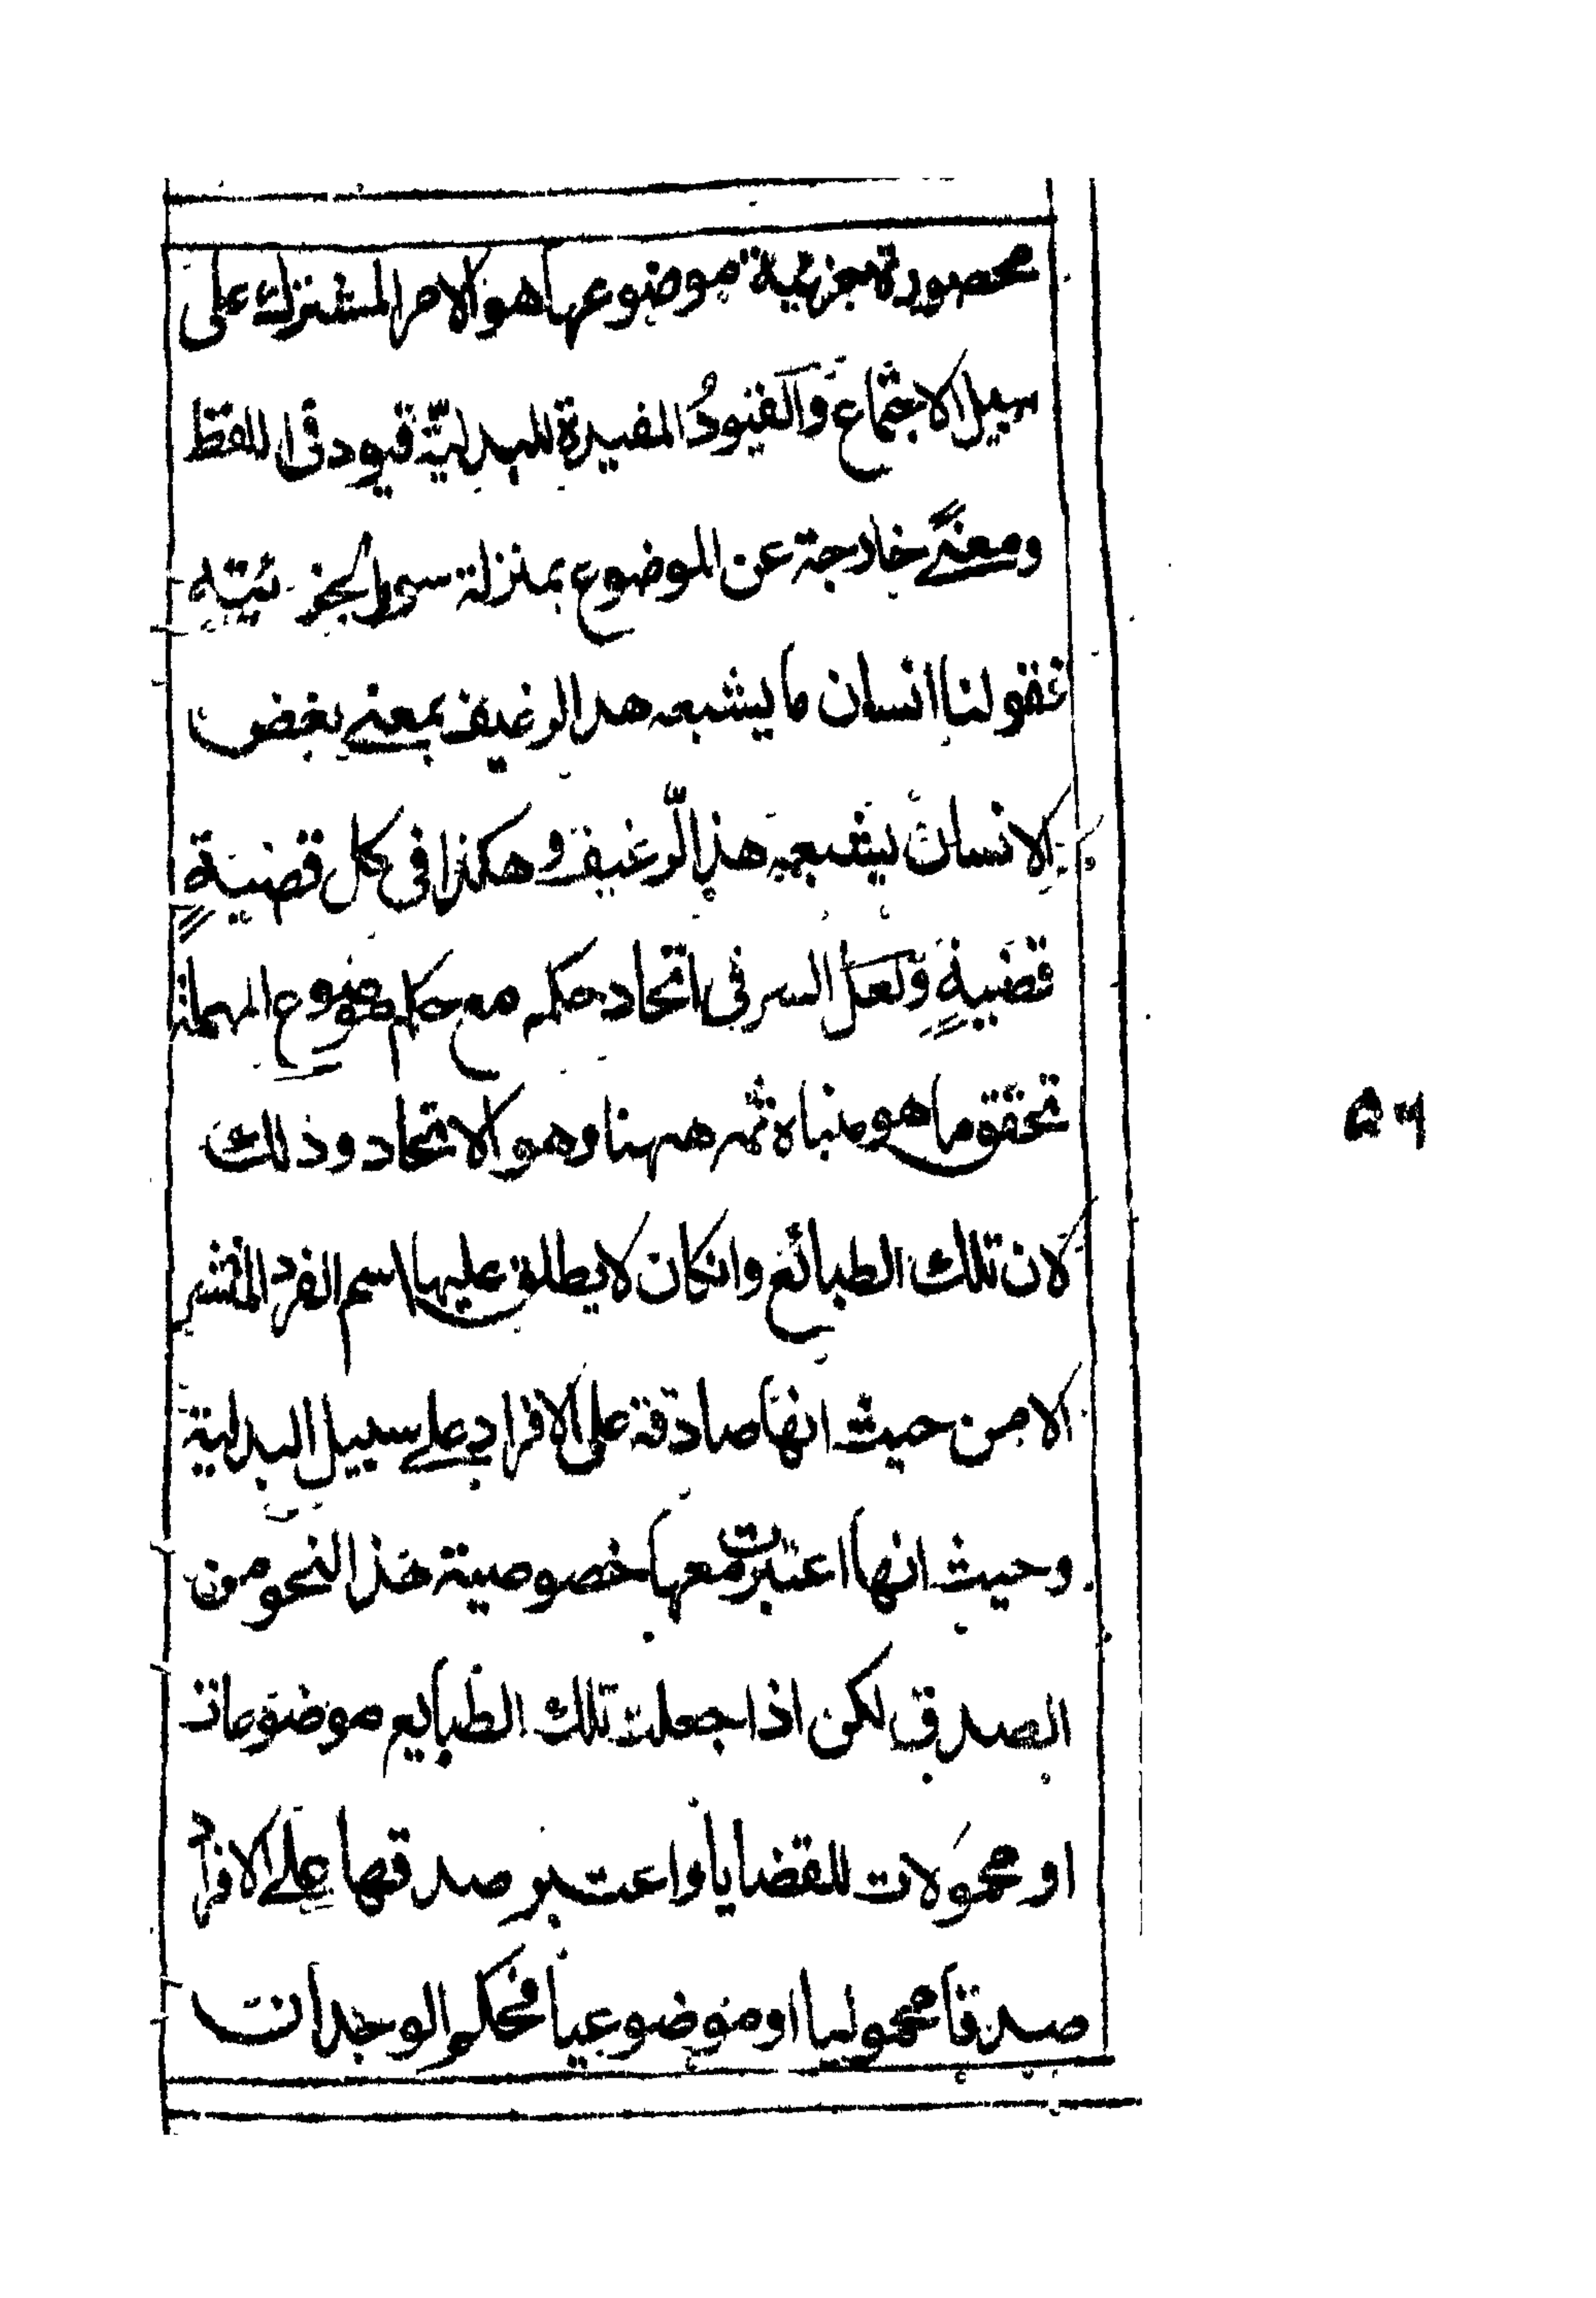 محصورة جزئية موضوعها هو الامر المشترك على
سبيل الاجتماع والقيود المفيدة للبدليّة قيود فى اللفظ
ومعنىً خارجة عن الموضوع بمنزلة سور الجزئيته
فقولنا انسان ما يشبعه هذا الرغيف بمعنى بعض
الانسان يشبعه هذا الرّغيف وهكذا فى كل قضيةٍ
قضيةٍ ولعل السر فى اتحاد حكمه مع حكم موضوع المهملة
تحقق ما هو مبناه ثمه ههنا وهو الاتحاد وذلك
لان تلك الطبائع وانكان لا يطلق عليها اسم الفرد المنتشر
الا من حيث انها صادقة على الافراد على سبيل البدلية
وحيث انها اعتبرت معها خصوصية هذا النحو من
الصدق لكن اذا جعلت تلك الطبايع موضوعات
او محمولات للقضايا واعتبر صدقها على الافراد
صدقا محموليا او موضوعيا فحكم الوجدان
٥٦